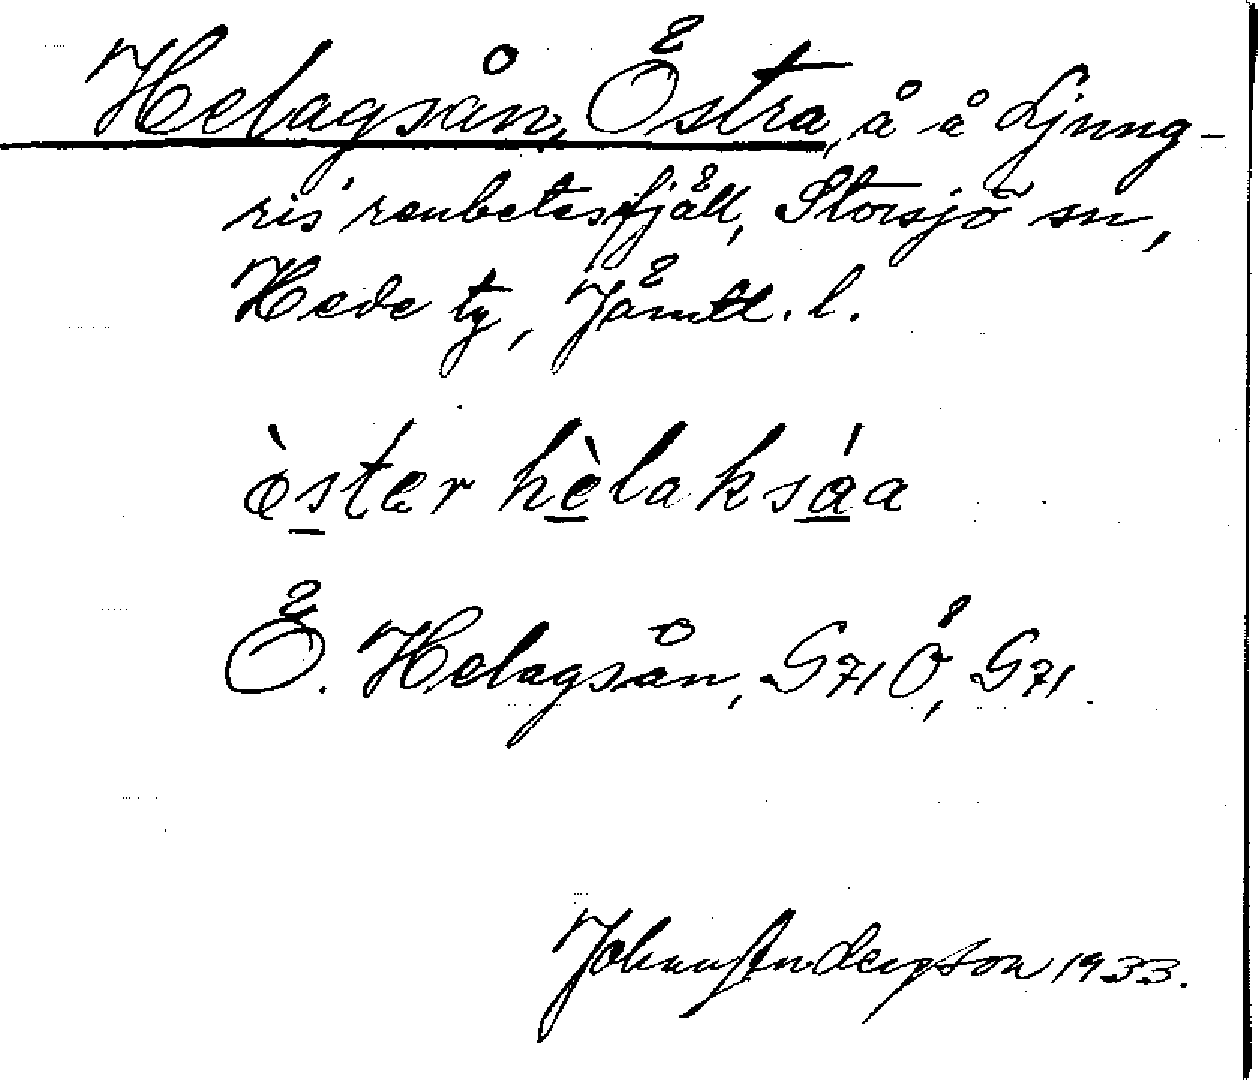 Helagsån, Östra, å å Ljung-
ris' renbetesfjäll, Storsjö sn,
Hede tg, Jämtl. l.
ὸster hèlaksáa
Ö. Helagsån, G71Ö, G71.
John Andersson 1933.